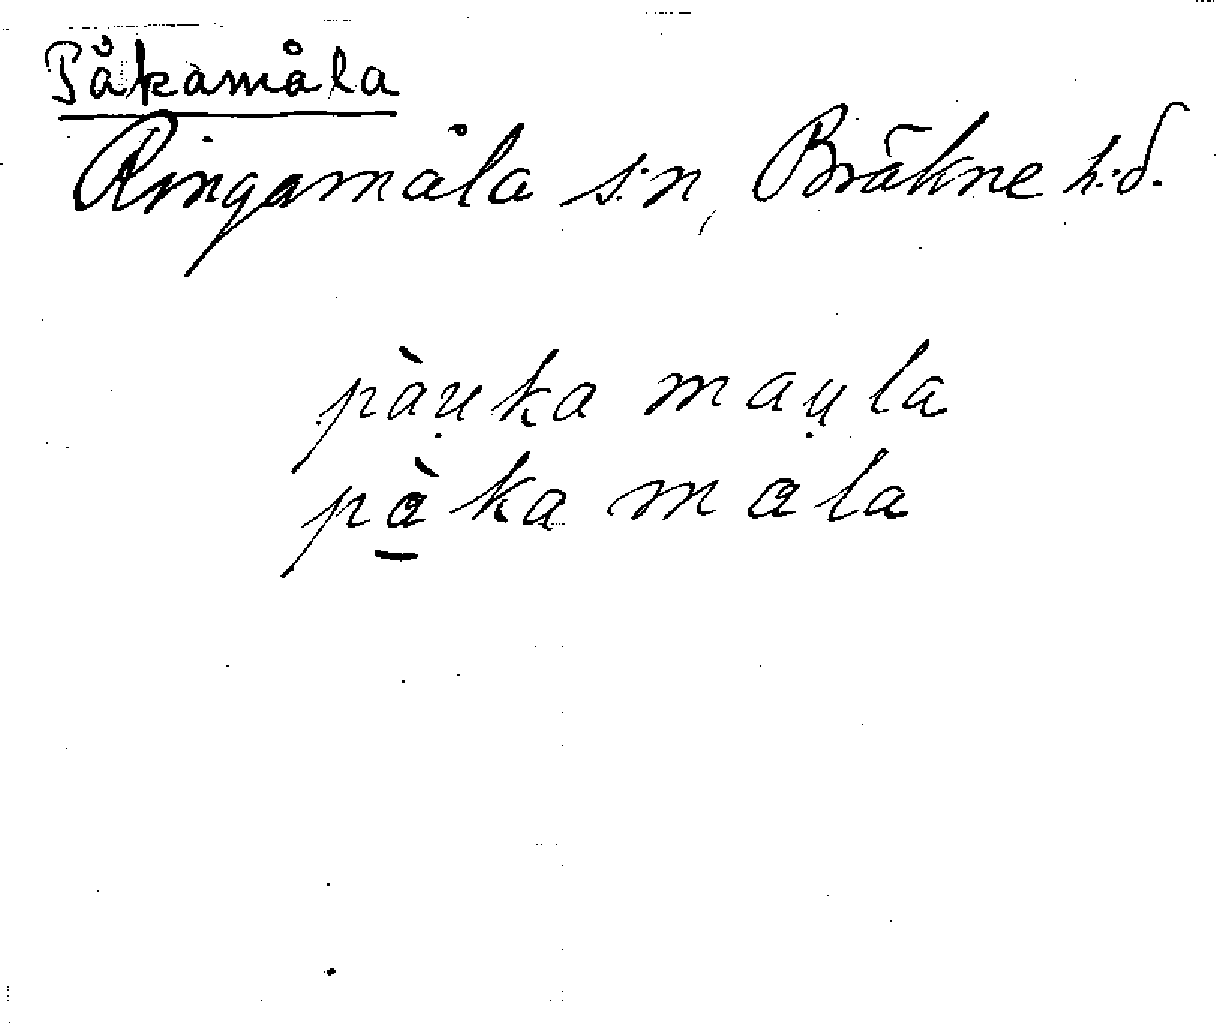 Påkamåla
Ringamåla s:n, Bräkne h:d.
pàu̩ka mau̩la
pà̱ka mala